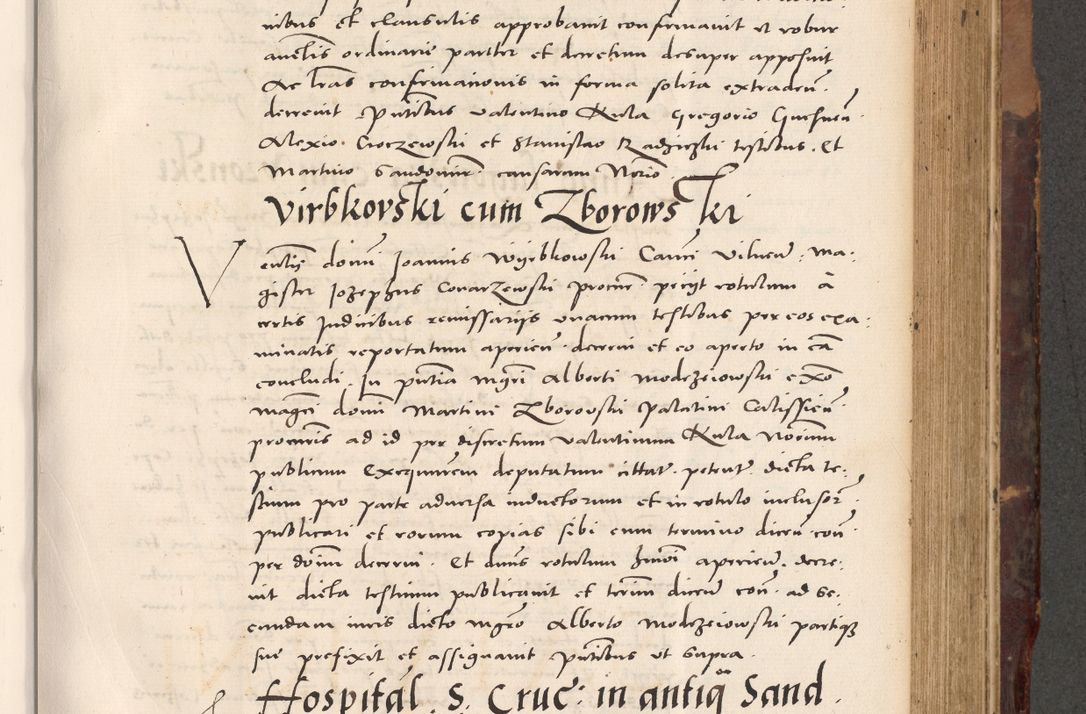 nibus et clausulis approbavit confirmavit et robur
ordinarie pariter et decretum desuper apposuit
Ac lras confirmationis in forma solita extraden.
decrevit Pntibus valentino Rula Gregorio
Alexio Croczewski et Stanislao Radziczki testibus. Et
Martino Sandomir. causarum Norio.
Virbkovski cum Zborowski
Ventis domini Joannis Wyrbkowski Canci Vilnen. Ma-
gister Jozephus Conarzewski procur. periit rotulum à
certis Judicibus remissariis unacum testibus per eos exa-
minatis reportatum aperien. decerni et eo aperto in ca
concludi. In pntia mgri Alberti Modrzeiowski ex
magci domini Martini Zborovski palatini Calissien.
procuris ad id per discretum valentinum Rula Norium
publicum Exequutrem deputatum cittat. petent. dicta te-
stium pro parte adversa inductorum et in rotulo inclusor.
publicari et eorum copias sibi cum termino dicen con.
per domin decerni. Et dnus rotulum aperien. decre-
vit dicta testium publicavit et termin dicen con. ad se-
cundam iuris dicto mgro Alberto Modrzeiowski partiq
sue prefixit et assignavit Pntibus ut supra.
Hospital. S. Cruc: in antiqa Sand.